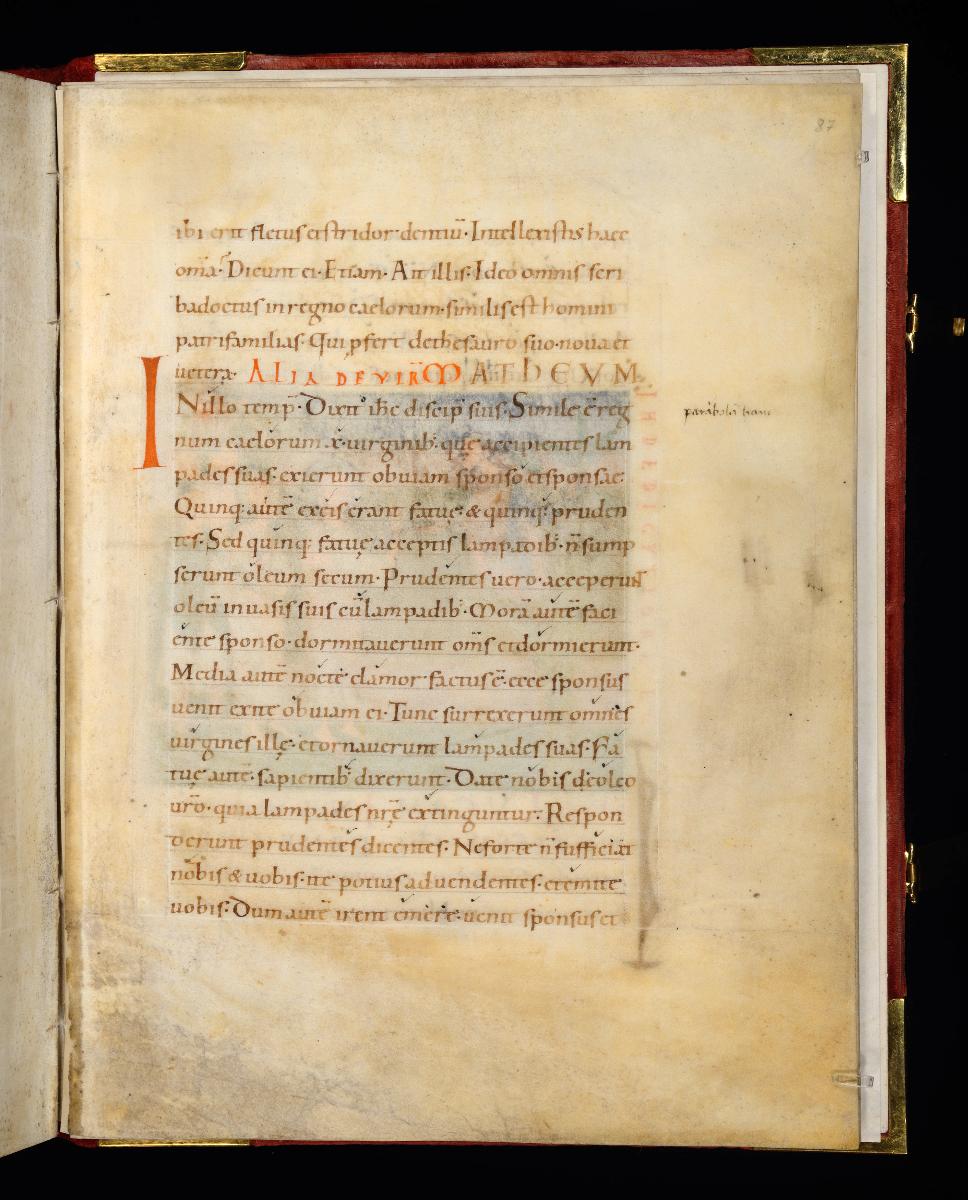 87
ibi erit fletus et stridor dentiū. Intellexistis haec
om̄a. Dicunt ei. Etiam. Ait illis. Ideo omnis scri
ba doctus in regno caelorum. similis est homini
patrifamilias. Qui ꝓfert de thesauro suo. noua et
uetera. ALIA DE VIRḠ MATHEUM.
IN illo temp̄. Dixit ih̄c discip̄ suis. Simile ē reg
num caelorum .x. uirginib; quę accipientes lam
parabolā hanc
pades suas. exierunt obuiam sponso et sponsae.
Quinq; autē ex eis erant fatuę. & quinq; pruden
tes. Sed quinq; fatuę acceptis lampadib; n̄ sump
serunt oleum secum. Prudentes uero. acceperunt
oleū in uasis suis cū lampadib;. Morā autē faci
ente sponso. dormitauerunt om̄s et dormierunt.
Media autē nocte clamor factus ē. ecce sponsus
uenit exite obuiam ei. Tunc surrexerunt omnes
uirgines illę. et ornauerunt lampades suas. Fa
tuę autē. sapientib; dixerunt. Date nobis de oleo
ur̄o. quia lampades nrę̄ extinguntur. Respon
derunt prudentes dicentes. Ne forte n̄ sufficiat
nobis & uobis. ite potius ad uendentes. et emite
uobis. Dum autē irent emere. uenit sponsus et